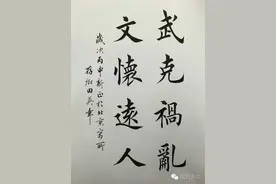 武克禍亂
文懷遠人
歲次丙申新正於北京寓所